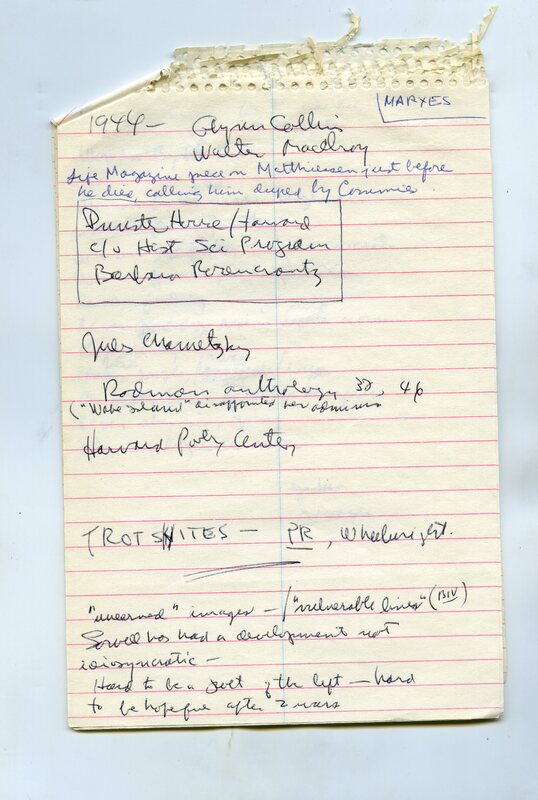 MARXES
1944 — Glynn Collins
Walter MacElroy
Life Magazine piece on Matthiessen just before
he died, calling him duped by Commies
Dunster House / Harvard
c/o Hist Sci Program
Barbara Rosencrantz
Jules Chametzky
Rodman anthology 38, 46
("Wake Island" disappointed her admirers
Harvard Poetry Center
TROTSKYITES — PR, Wheelwright.
"unearned" images — / "vulnerable lines" (BIV)
has had a development not
idiosyncratic —
Hard to be a poet of the left — hard
to be hopeful after 2 wars